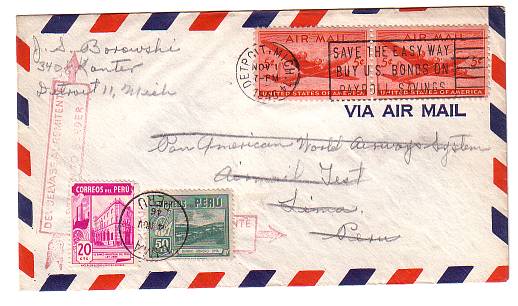 J. S. Borowski
Detroit 11, Mich
DETROIT, MICH.
NOV 1
7-PM
SAVE THE EASY WAY
BUY U.S. BONDS ON
PAYROLL SAVINGS
AIR MAIL
5¢ 5¢
UNITED STATES OF AMERICA
AIR MAIL
5¢ 5¢
UNITED STATES OF AMERICA
VIA AIR MAIL
Pan American World Airways System
Airmail Test
Lima,
Peru
DEVUELVASE AL REMITENTE
CORREOS DEL PERU
20
CTS
PERU
50